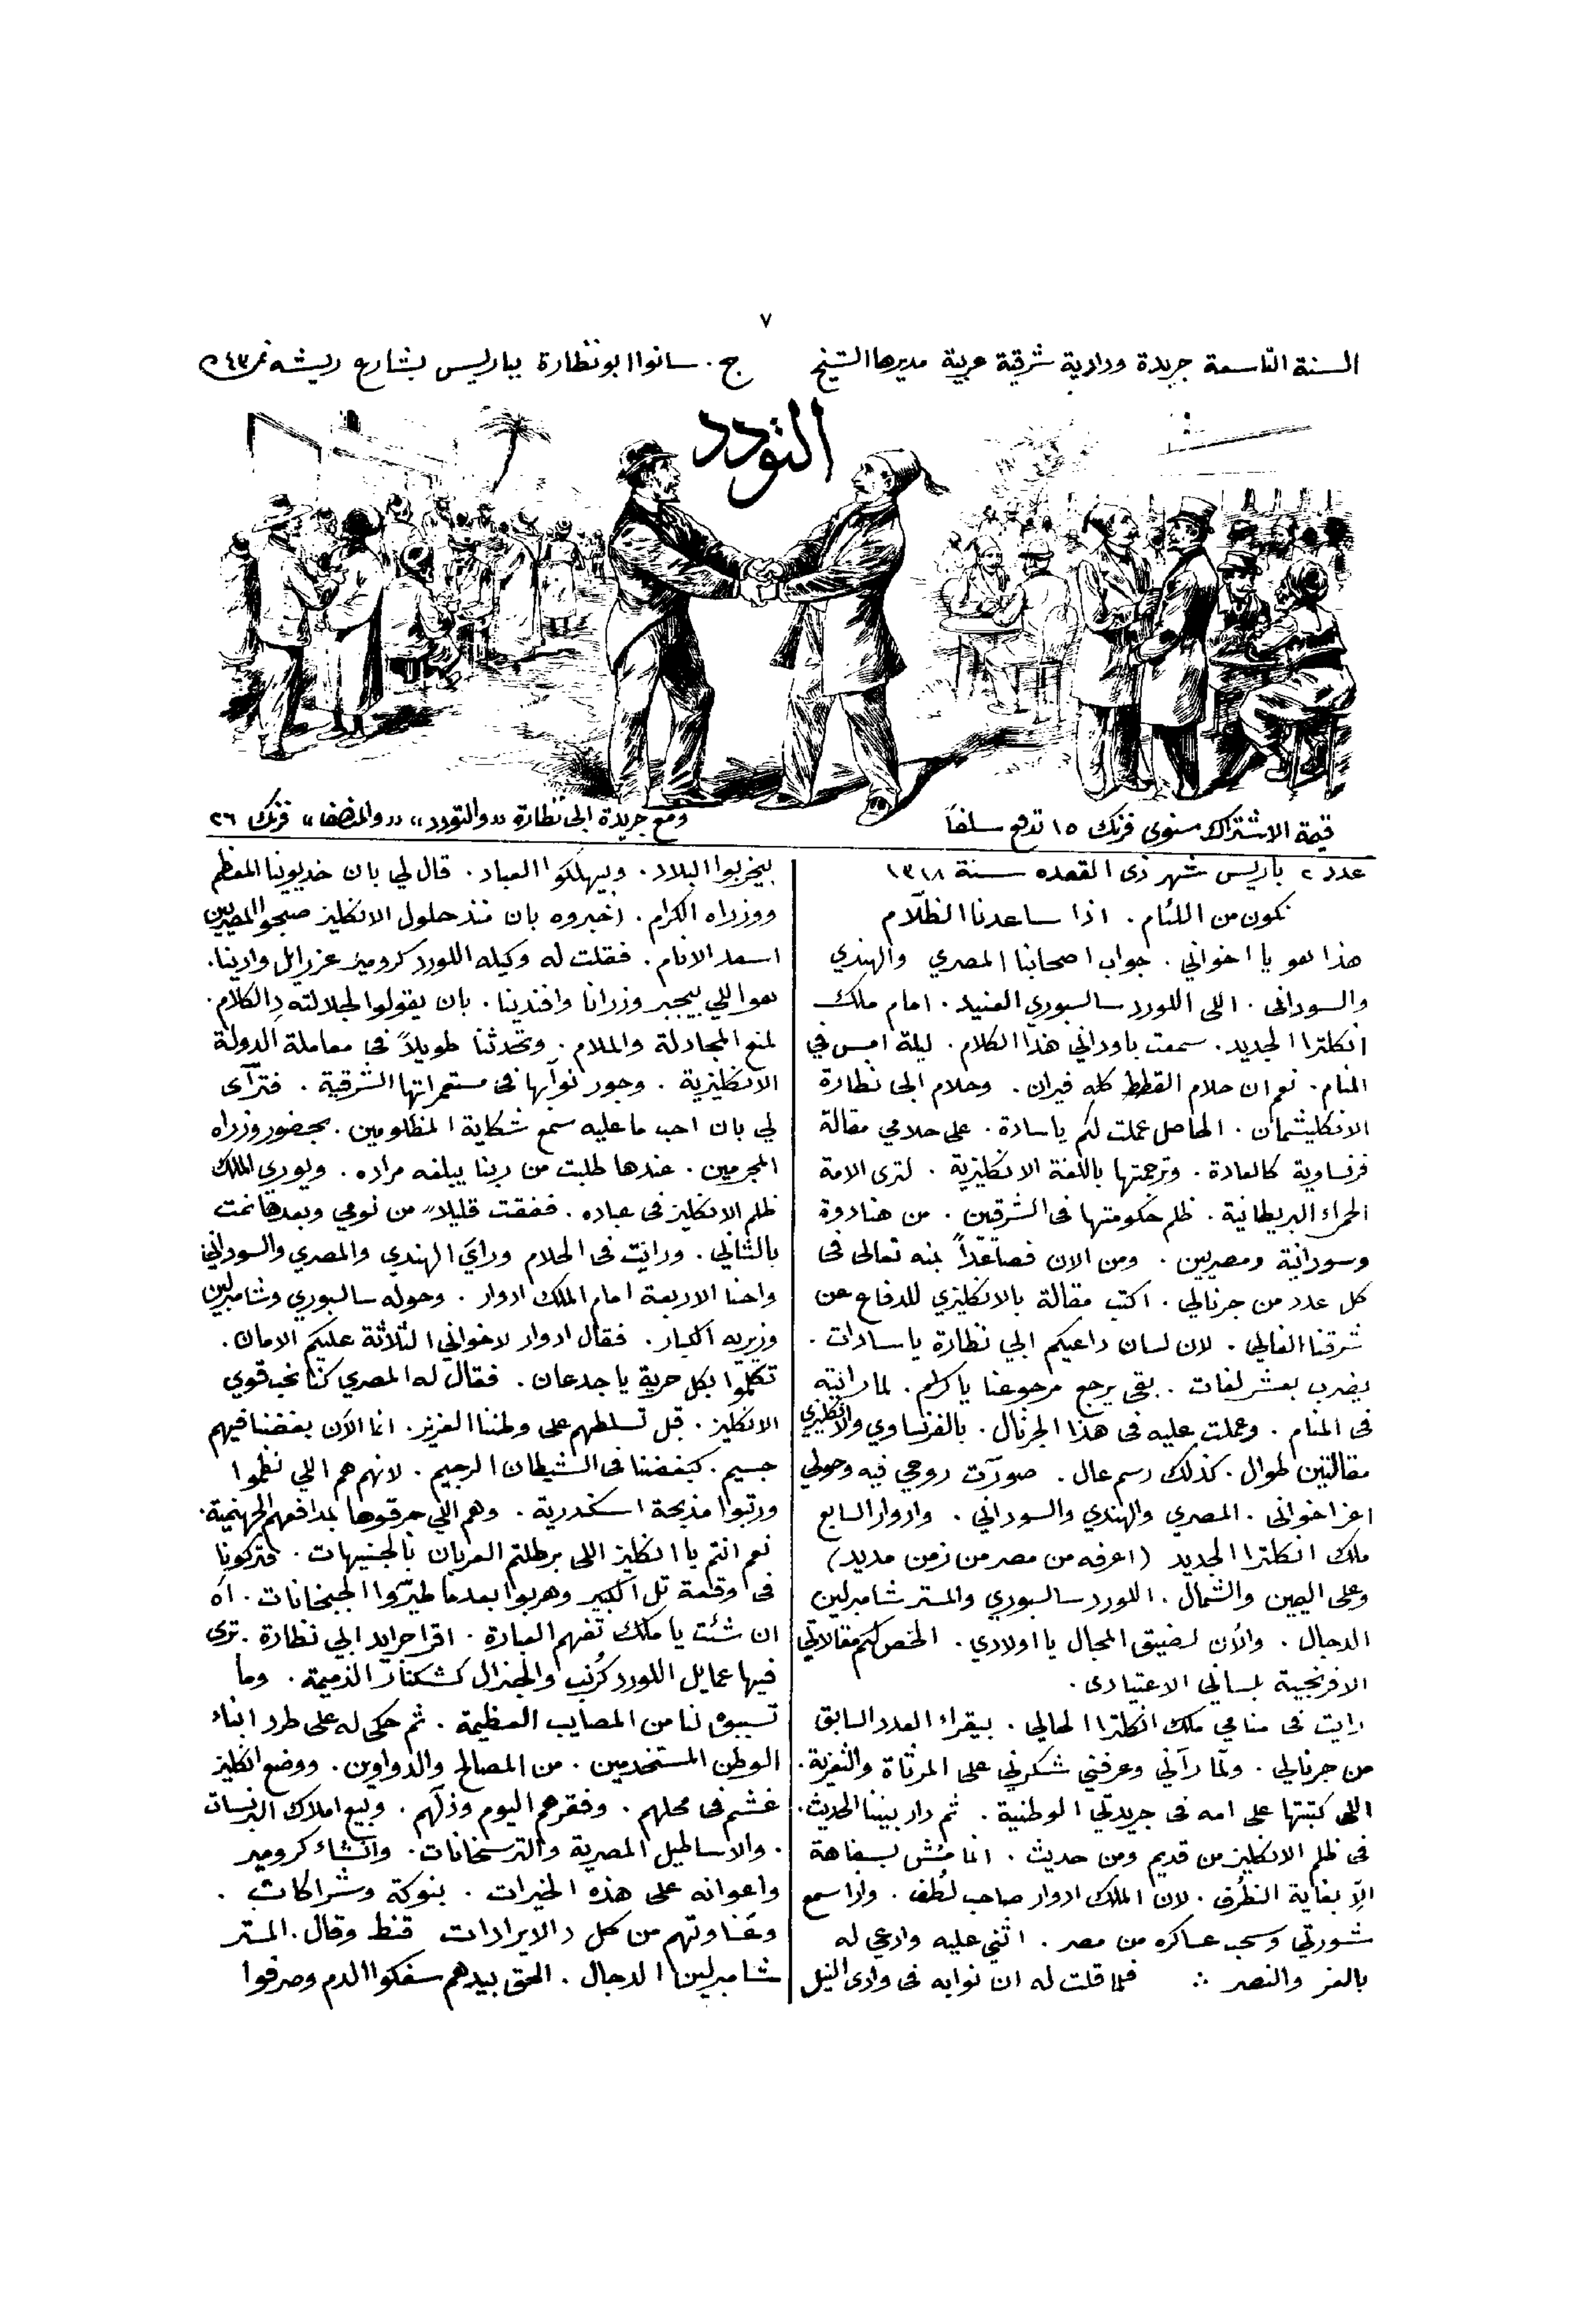 ٧
السنة التاسعة جريدة ودادية شرقية عربية مديرها الشيخ ج. سانوا ابو نظارة بباريس بشارع ريشه نمر ٤٣
التودد
قيمة الاشتراك سنوى فرنك ١٥ تدفع سلفاً
ومع جريدة ابى نظارة «والتودد» «والمنصف» فرنك ٢٦
عدد ٢ باريس شهر ذى القعده سنة ١٣١٨
نكون من اللئام. اذا ساعدنا الظلّام
هذا هو يا اخواني. جواب اصحابنا المصري والهندي
والسودانى. الى اللورد سالسبوري العنيد. امام ملك
انكلترا الجديد. سمعت باودانى هذا الكلام. ليلة امس في
المنام. نعم ان حلام القطط كله فيران. وحلام ابى نظارة
الانكليشمان. الحاصل عملت لكم ياسادة. على حلامي مقالة
فرنساوية كالعادة. وترجمتها باللغة الانكليزية. لترى الامة
الحمراء البريطانية. ظلم حكومتها فى الشرقيين. من هنادوة
وسودانية ومصريين. ومن الان فصاعداً بمنه تعالى فى
كل عدد من جرنالي. اكتب مقالة بالانكليزي للدفاع عن
شرقنا الغالي. لان لسان داعيكم ابي نظارة ياسادات.
يضرب بعشر لغات. بقى يرجع مرجوعنا ياكرام. لما رايته
فى المنام. وعملت عليه فى هذا الجرنال. بالفرنساوي والانكليزي
مقالتين طوال. كذلك رسم عال. صوّرت روحي فيه وحولي
اعز اخوانى. المصري والهندي والسوداني. وادوار السابع
ملك انكلترا الجديد (اعرفه من مصر من زمن مديد)
وعلى اليمين والشمال. اللورد سالسبوري والمستر شامبرلين
الدجال. والان لضيق المجال يا اولادي. الخص لكم مقالاتي
الافرنجية بلساني الاعتيادى.
رايت فى منامي ملك انكلترا الحالي. بيقراء العدد السابق
من جرنالي. ولمّا رآني وعرفني شكرني على المرثاة والتعزية.
اللى كتبتها على امه فى جريدتي الوطنية. ثم دار بيننا الحديث.
فى ظلم الانكليز من قديم ومن حديث. انما مُش بسفاهة
الاّ بغاية الظُرف. لان الملك ادوار صاحب لُطف. واذا سمع
شورتي وسحب عساكره من مصر. اثني عليه وادعي له
بالعز والنصر ∴ فلما قلت له ان نوابه فى وادى النيل
بيخربوا البلاد. وبيهلكوا العباد. قال لي بان خديوينا المعظم
ووزراه الكرام. اخبروه بان منذ حلول الانكليز صبحوا المصريين
اسعد الانام. فقلت له وكيله اللورد كرومير عزرايل وادينا.
هو اللي بيجبر وزرانا وافندينا. بان يقولوا لجلالته دِالكلام.
لمنع المجادلة والملام. وتحدثنا طويلاً فى معاملة الدولة
الانكليزية. وجور نوّابها فى مستعمراتها الشرقية. فترآى
لي بان احب ما عليه سمع شكاية المظلومين. بحضور وزراه
المجرمين. عندها طلبت من ربنا يبلغه مراده. ويوري الملك
ظلم الانكليز فى عباده. ففقت قليلاً من نومي وبعدها نمت
بالثاني. ورايت فى الحلام وراي الهندي والمصري والسوداني
واحنا الاربعة امام الملك ادوار. وحوله سالسبوري وشامبرلين
وزيريه الكبار. فقال ادوار لاخواني الثلاثة عليكم الامان.
تكلموا بكل حرية ياجدعان. فقال له المصري كنّا نحب قوي
الانكليز. قبل تسلطهم على وطننا العزيز. انما الآن بغضنا فيهم
جسيم. كبغضنا فى الشيطان الرجيم. لانهم هم اللي نظموا
ورتبوا مذبحة اسكندرية. وهم اللي حرقوها بمدافعهم الجهنمية.
نعم انتم يا انكليز اللى برطلتم العربان بالجنيهات. فتركونا
فى وقعة تل الكبير وهربوا بعدما طيرّوا الجبخانات. اه
ان شئت يا ملك تفهم العبارة. اقرا جرايد ابي نظارة. ترى
فيها عمايل اللورد كرُنب والجنرال كشكنار الذميمة. وما
تسببوه لنا من المصايب العظيمة. ثم حكى له على طرد ابناء
الوطن المستخدمين. من المصالح والدواوين. ووضع انكليز
غشم فى محلهم. وفقرهم اليوم وذلّهم. وبيع املاك البرنسات
. والاساطيل المصرية والترسخانات. وانشاء كرومير
واعوانه على هذه الخيرات. بنوكة وشراكات.
وغناوتهم من كل دالايرادات قنط وقال. المستر
شامبرلين الدجال. الحق بيدهم سفكوا الدم وصرفوا